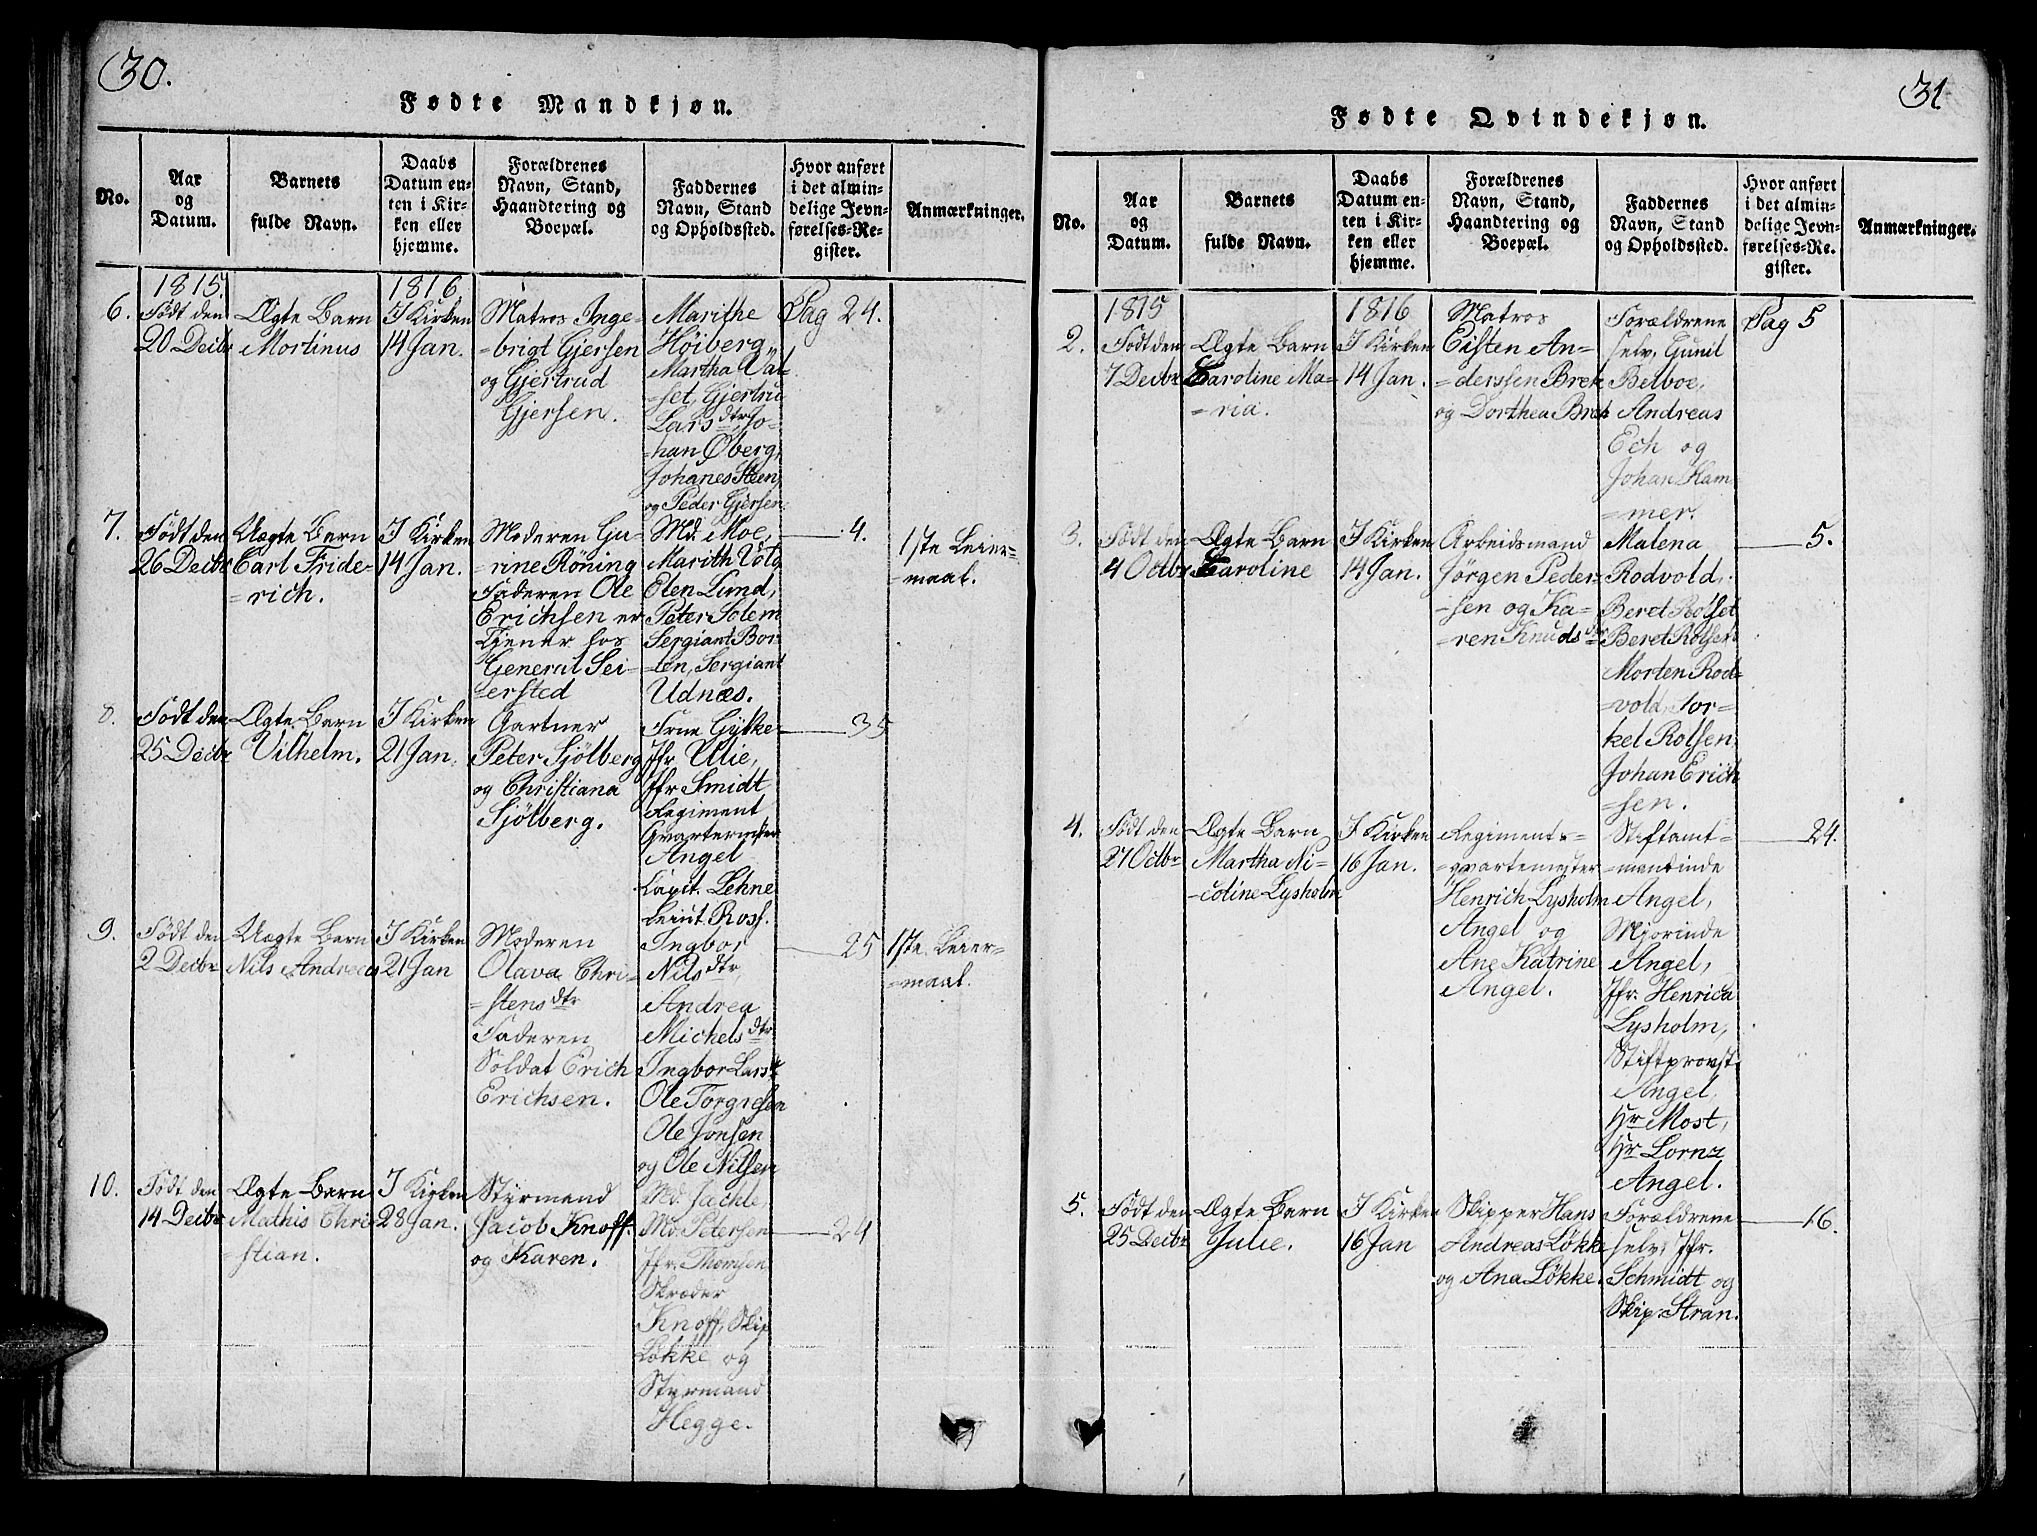 30.
Fødte Mandkjøn.
No.
Aar
og
Datum.
Barnets
fulde Navn.
Daabs
Datum en-
ten i Kir-
ken eller
hjemme.
Forældrenes
Navn, Stand,
Haandtering og
Boepæl.
Faddernes
Navn, Stand
og Opholdssted.
Hvor anført
i det almin-
delige Jevn-
førelses-Re-
gister.
Anmærkninger.
6.
1815.
Født den
20 Decbr
Ægte Barn
Mortinus
1816
I Kirken
14 Jan.
Matros Inge-
=brigt Gjersen
og Gjertrud
Gjersen.
Marithe
Høiberg,
Martha Val-
=set, Gjertru
Larsdtr, Jo-
=han Øberg,
Johanes Steen,
og Peder Gjersen
Pag 24.
7.
Født den
26 Decbr
Uægte Barn
Carl Fride-
=rich.
I Kirken
14 Jan.
Moderen Gu-
=rine Röning
Faderen Ole
Erichsen er
Tjener hos
General Sei-
=ersted
Md. Moe,
Marith Volg
Elen Lund,
Peter Solem
Sergiant Bor-
=ten, Sergiant
Udnæs.
4.
1ste Leier-
=maal.
8.
Født den
25 Decbr
Ægte Barn
Vilhelm.
I Kirken
21 Jan.
Gartner
Peter Sjölberg
og Christiana
Sjölberg.
Frue Gylke
Jfr Ulie,
Jfr Smidt
Regiment
Qvartermster
Angel
Capit. Lehne
Leiut. Ross.
35
9.
Født den
2 Decbr
Uægte Barn
Nils Andreas
I Kirken
21 Jan
Moderen
Olava Chri-
=stensdtr
Faderen
Soldat Erich
Erichsen.
Ingbor
Nilsdtr,
Andrea
Michelsdtr
Ingbor Larsdtr
Ole Torgresen
Ole Jonsen
og Ole Nilsen
25
1ste Leier-
=maal.
10.
Født den
14 Decbr
Ægte Barn
Mathis Chri
=stian.
I Kirken
28 Jan.
Styrmand
Jacob Knoff.
og Karen.
Md. Jachle,
Md. Petersen
Jfr. Thomsen
Skræder
Knoff, Skip
Løkke og
Styrmand
Hegge.
24
31
Fødte Qvindekjøn.
No.
Aar
og
Datum.
Barnets
fulde Navn.
Daabs
Datum en-
ten i Kir-
ken eller
hjemme.
Forældrenes
Navn, Stand,
Haandtering og
Boepæl.
Faddernes
Navn, Stand
og Opholdssted.
Hvor anført
i det almin-
delige Jevn-
førelses-Re-
gister.
Anmærkninger.
2.
1815
Født den
7 Decbr
Ægte Barn
Caroline Ma-
=ria.
1816
I Kirken
14 Jan.
Matros
Eisten An-
=derssen Brek
og Dorthea Brek
Forældrene
selv, Gunil
Belboe,
Andreas
Ech og
Johan Ham
=mer.
Pag 5
3.
Født den
4 Octbr
Ægte Barn
Caroline
I Kirken
14 Jan.
Arbeidsmand
Jörgen Peder-
=sen og Ka-
=ren Knudsdtr
Malena
Rodvold,
Beret Rolset
Beret Rolsen
Morten Rod-
=vold, Tor-
kel Rolsen
Johan Erich
=sen.
5.
4.
Født den
27 Octbr
Ægte Barn
Martha Ni-
=coline Lysholm
I Kirken
16 Jan.
Regiments-
=qvartemester
Henrich Lysholm
Angel og
Ane Katrine
Angel.
Stiftamt-
=mandinde
Angel,
Mjorinde
Angel,
Jfr. Henrica
Lysholm,
Stiftprovst
Angel,
Hr Most,
Hr Lornz
Angel.
24.
5.
Født den
25 Decbr
Ægte Barn
Julie.
I Kirken
16 Jan
Skipper Hans
Andreas Løkke
og Ana Løkke.
Forældrene
selv, Jfr.
Schmidt og
Skip: Stran.
16.